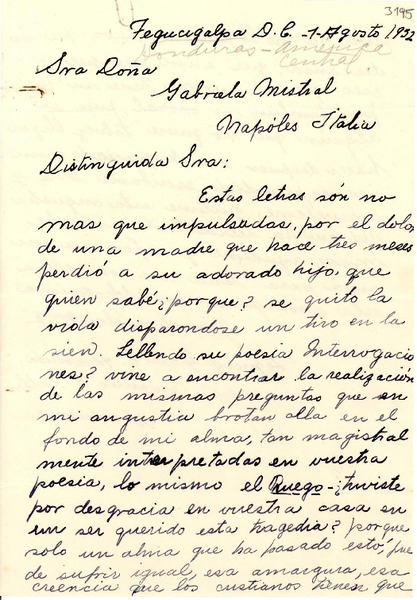 3195
Tegucigalpa D.C. -1-Agosto 1952
Honduras - America
Central
Sra Doña
Gabriela Mistral
Napóles Italia
Distinguida Sra:
Estas letras són no
mas que impulsadas, por el dolor
de una madre que hace tres meses
perdió a su adorado hijo, que
quien sabé ¿porque? se quito la
vida disparondose un tiro en la
sien. Lellendo su poesia Interrogacio
nes? vine a encontrar la realización
de las mismas preguntas que en
mi angustia brotan alla en el
fondo de mi alma, tan magistral
mente interpretadas en vuestra
poesia, lo mismo el Ruego - ¿tuviste
por desgracia en vuestra casa en
un ser querido esta tragedia? porque
solo un alma que ha pasado estó, pue
de sufrir igual, esa amargura, esa
creencia que los cristianos tienen que